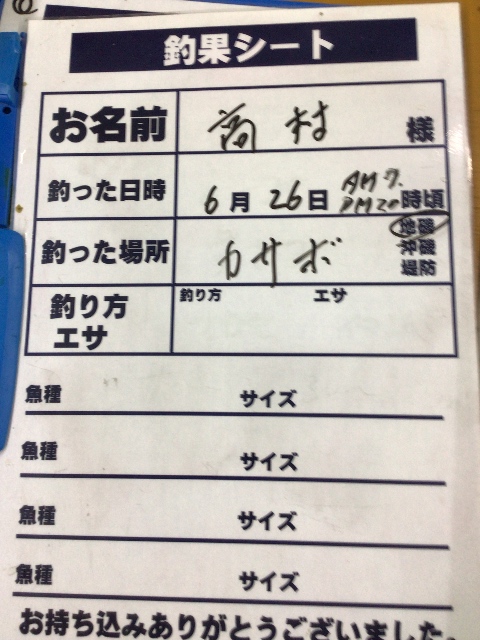 釣果シート
お名前 高村 様
釣った日時 6月26日 AM7. 時頃
釣った場所 カサボ 地磯
沖磯
堤防
釣り方 釣り方 エサ
エサ
魚種 サイズ
魚種 サイズ
魚種 サイズ
魚種 サイズ
お持ち込みありがとうございました。